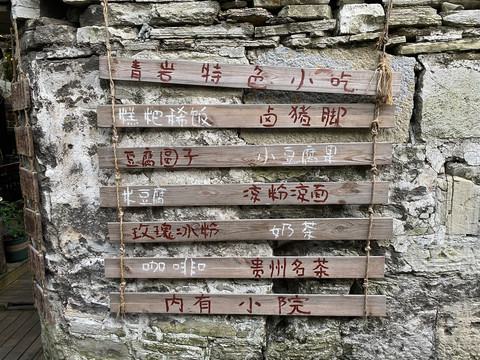 青岩特色小吃
糕粑稀饭 卤猪脚
豆腐圆子 小豆腐果
米豆腐 凉粉凉面
玫瑰冰粉 奶茶
咖啡 贵州名茶
内有小院